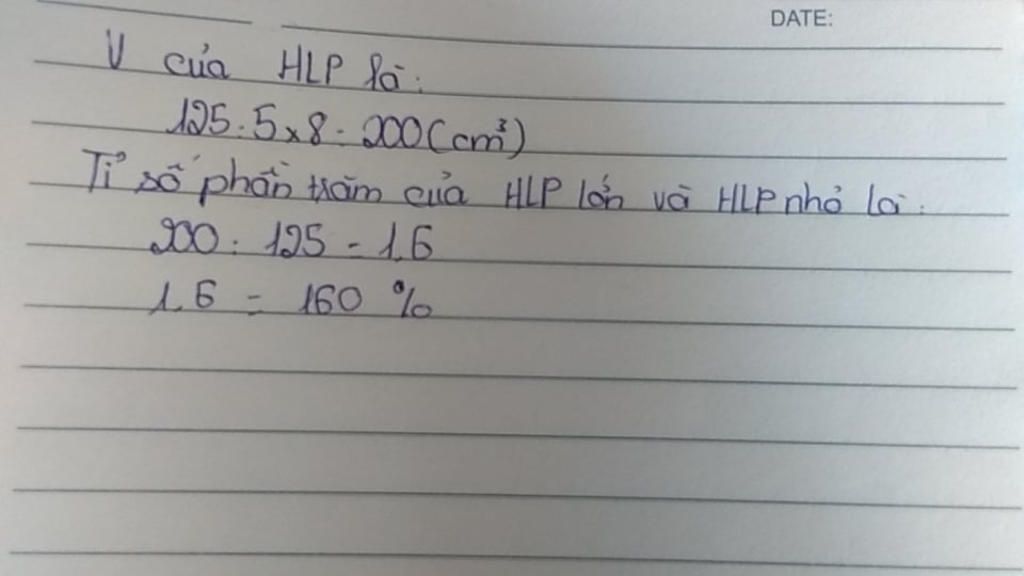 DATE:
V của HLP là:
125 : 5 x 8 = 200 (cm³)
Tỉ số phần trăm của HLP lớn và HLP nhỏ là:
200 : 125 = 1,6
1,6 = 160 %